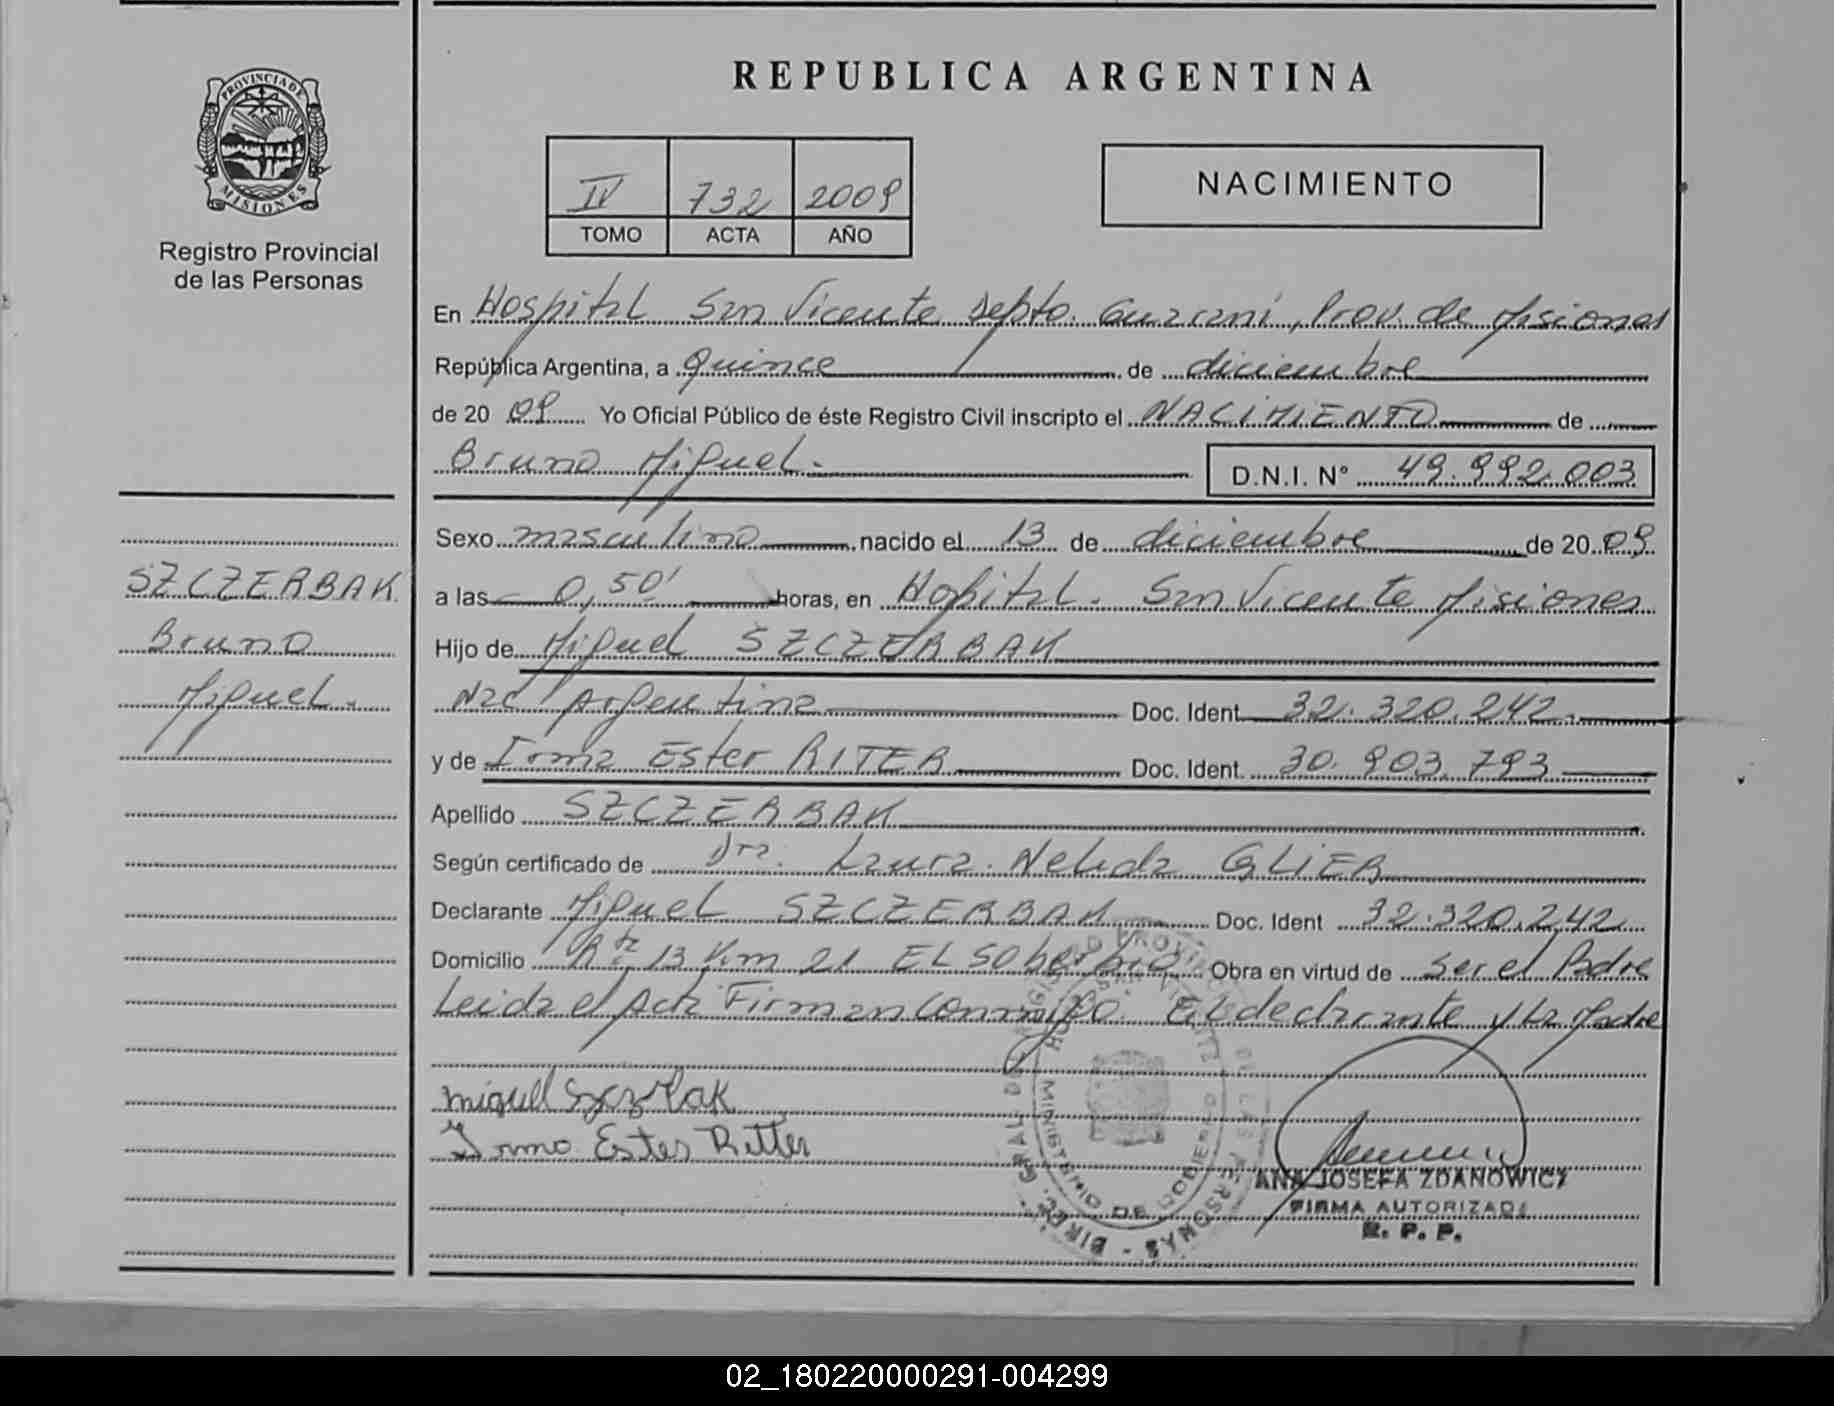 REPUBLICA ARGENTINA
PROVINCIA DE
MISIONES
Registro Provincial
de las Personas
IV 732 2009
TOMO ACTA AÑO
NACIMIENTO
En Hospital San Vicente depto. Guaraní, Prov. de Misiones
República Argentina, a Quince de diciembre
de 20 09 Yo Oficial Público de éste Registro Civil inscripto el NACIMIENTO de
Bruno Miguel. D.N.I. N° 49.992.003
SZCZERBAK
Bruno
Miguel.
Sexo masculino nacido el 13 de diciembre de 20 09
a las 0,50' horas, en Hospital. San Vicente Misiones
Hijo de Miguel SZCZERBAK
Nac Argentina Doc. Ident 32.320.242.
y de Irma Ester RITER Doc. Ident. 30.903.793
Apellido SZCZERBAK
Según certificado de Dra. Laura Nelida GLIER
Declarante Miguel SZCZERBAK Doc. Ident 32.320.242
Domicilio Rta 13 Km 21 EL Soberbio Obra en virtud de ser el Padre
Leida el Acta Firman Conmigo. El declarante y La Madre
Miguel
Irma Ester Ritter
MINISTERIO DE GOBIERNO
DE LAS PERSONAS
ANA JOSEFA ZDANOWICZ
FIRMA AUTORIZADA
R. P. P.
02_180220000291-004299